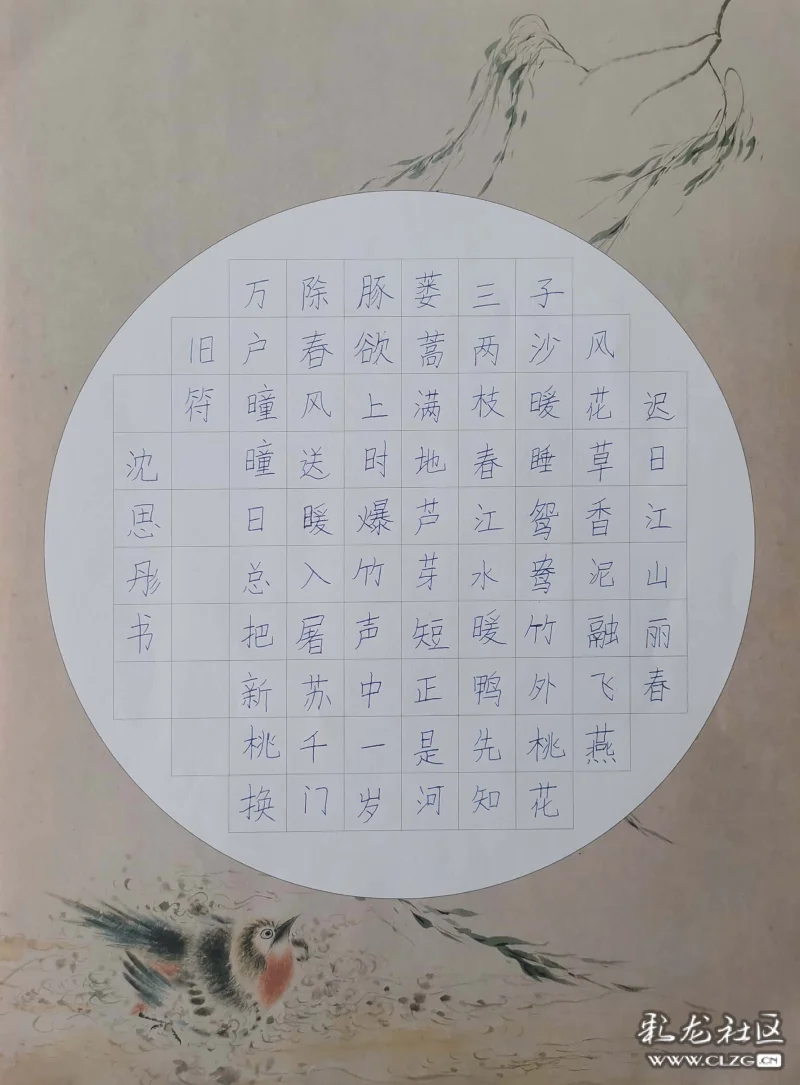 迟日江山丽春
风花草香泥融飞燕
子沙暖睡鸳鸯竹外桃花
三两枝春江水暖鸭先知
蒌蒿满地芦芽短正是河
豚欲上时爆竹声中一岁
除春风送暖入屠苏千门
万户曈曈日总把新桃换
旧符
沈思彤书
彩龙社区
WWW.CLZG.CN